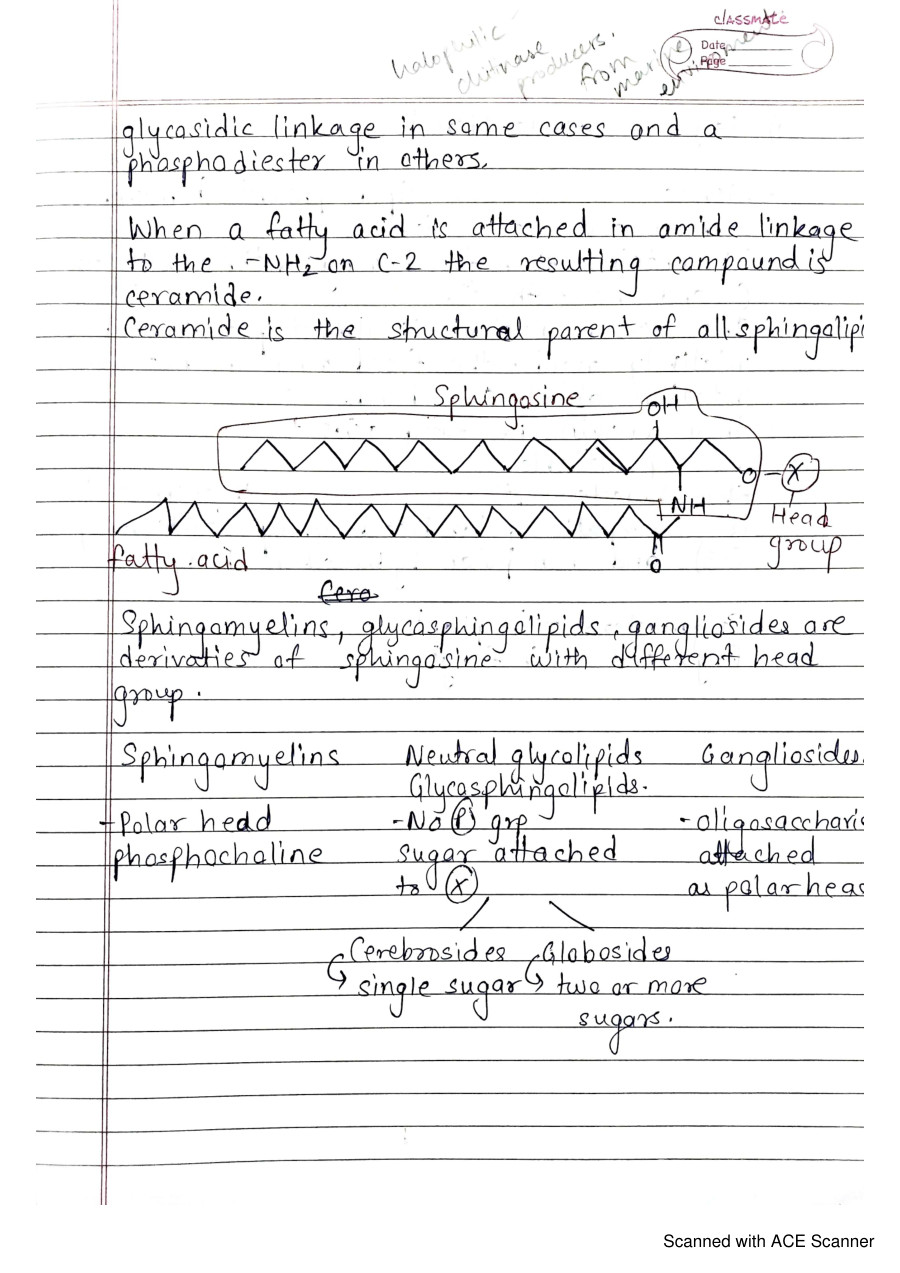 classmate
Date
Page
halophilic
chitinase
producers.
from
marine
environment
glycosidic linkage in some cases and a
phosphodiester in others.
When a fatty acid is attached in amide linkage
to the -NH2 on C-2 the resulting compound is
ceramide.
Ceramide is the structural parent of all sphingolipi
Sphingosine
OH
O - X
NH
Head
group
O
fatty acid
Cera
Sphingomyelins, glycosphingolipids, gangliosides are
derivaties of sphingosine with different head
group.
Sphingomyelins Neutral glycolipids Gangliosides.
Glycosphingolipids.
- Polar hedd - No P grp - oligosaccharis
phosphocholine sugar attached attached
to X as polar head
Cerebrosides Globosides
single sugar two or more
sugars.
Scanned with ACE Scanner